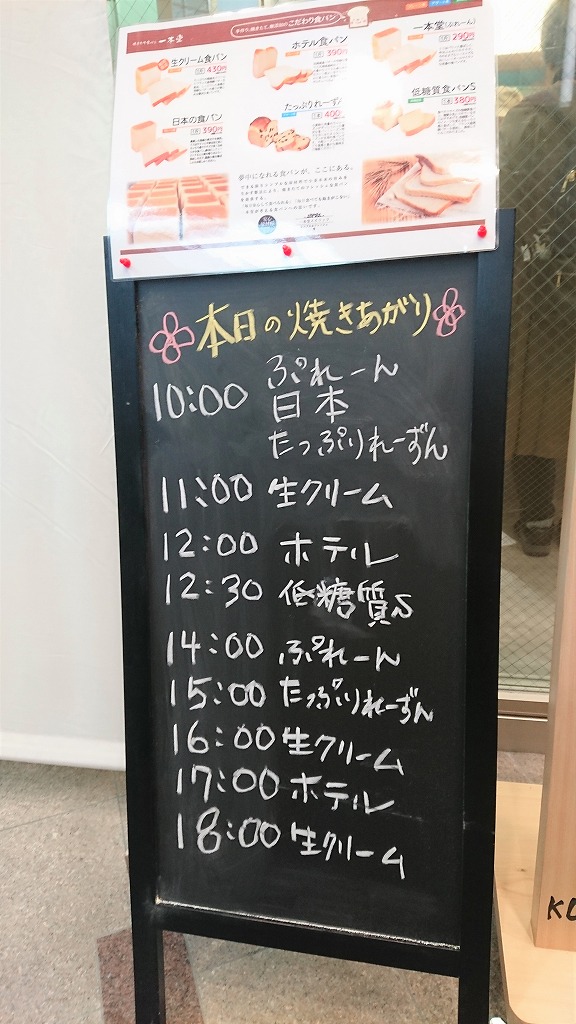 一本堂
こだわり食パン
生クリーム食パン
430円
ホテル食パン
390円
一本堂(ぷれーん)
290円
日本の食パン
390円
たっぷりれーずん
400円
低糖質食パンS
380円
夢中になれる食パンが、ここにある。
本日の焼きあがり
10:00 ぷれーん
日本
たっぷりれーずん
11:00 生クリーム
12:00 ホテル
12:30 低糖質S
14:00 ぷれーん
15:00 たっぷりれーずん
16:00 生クリーム
17:00 ホテル
18:00 生クリーム